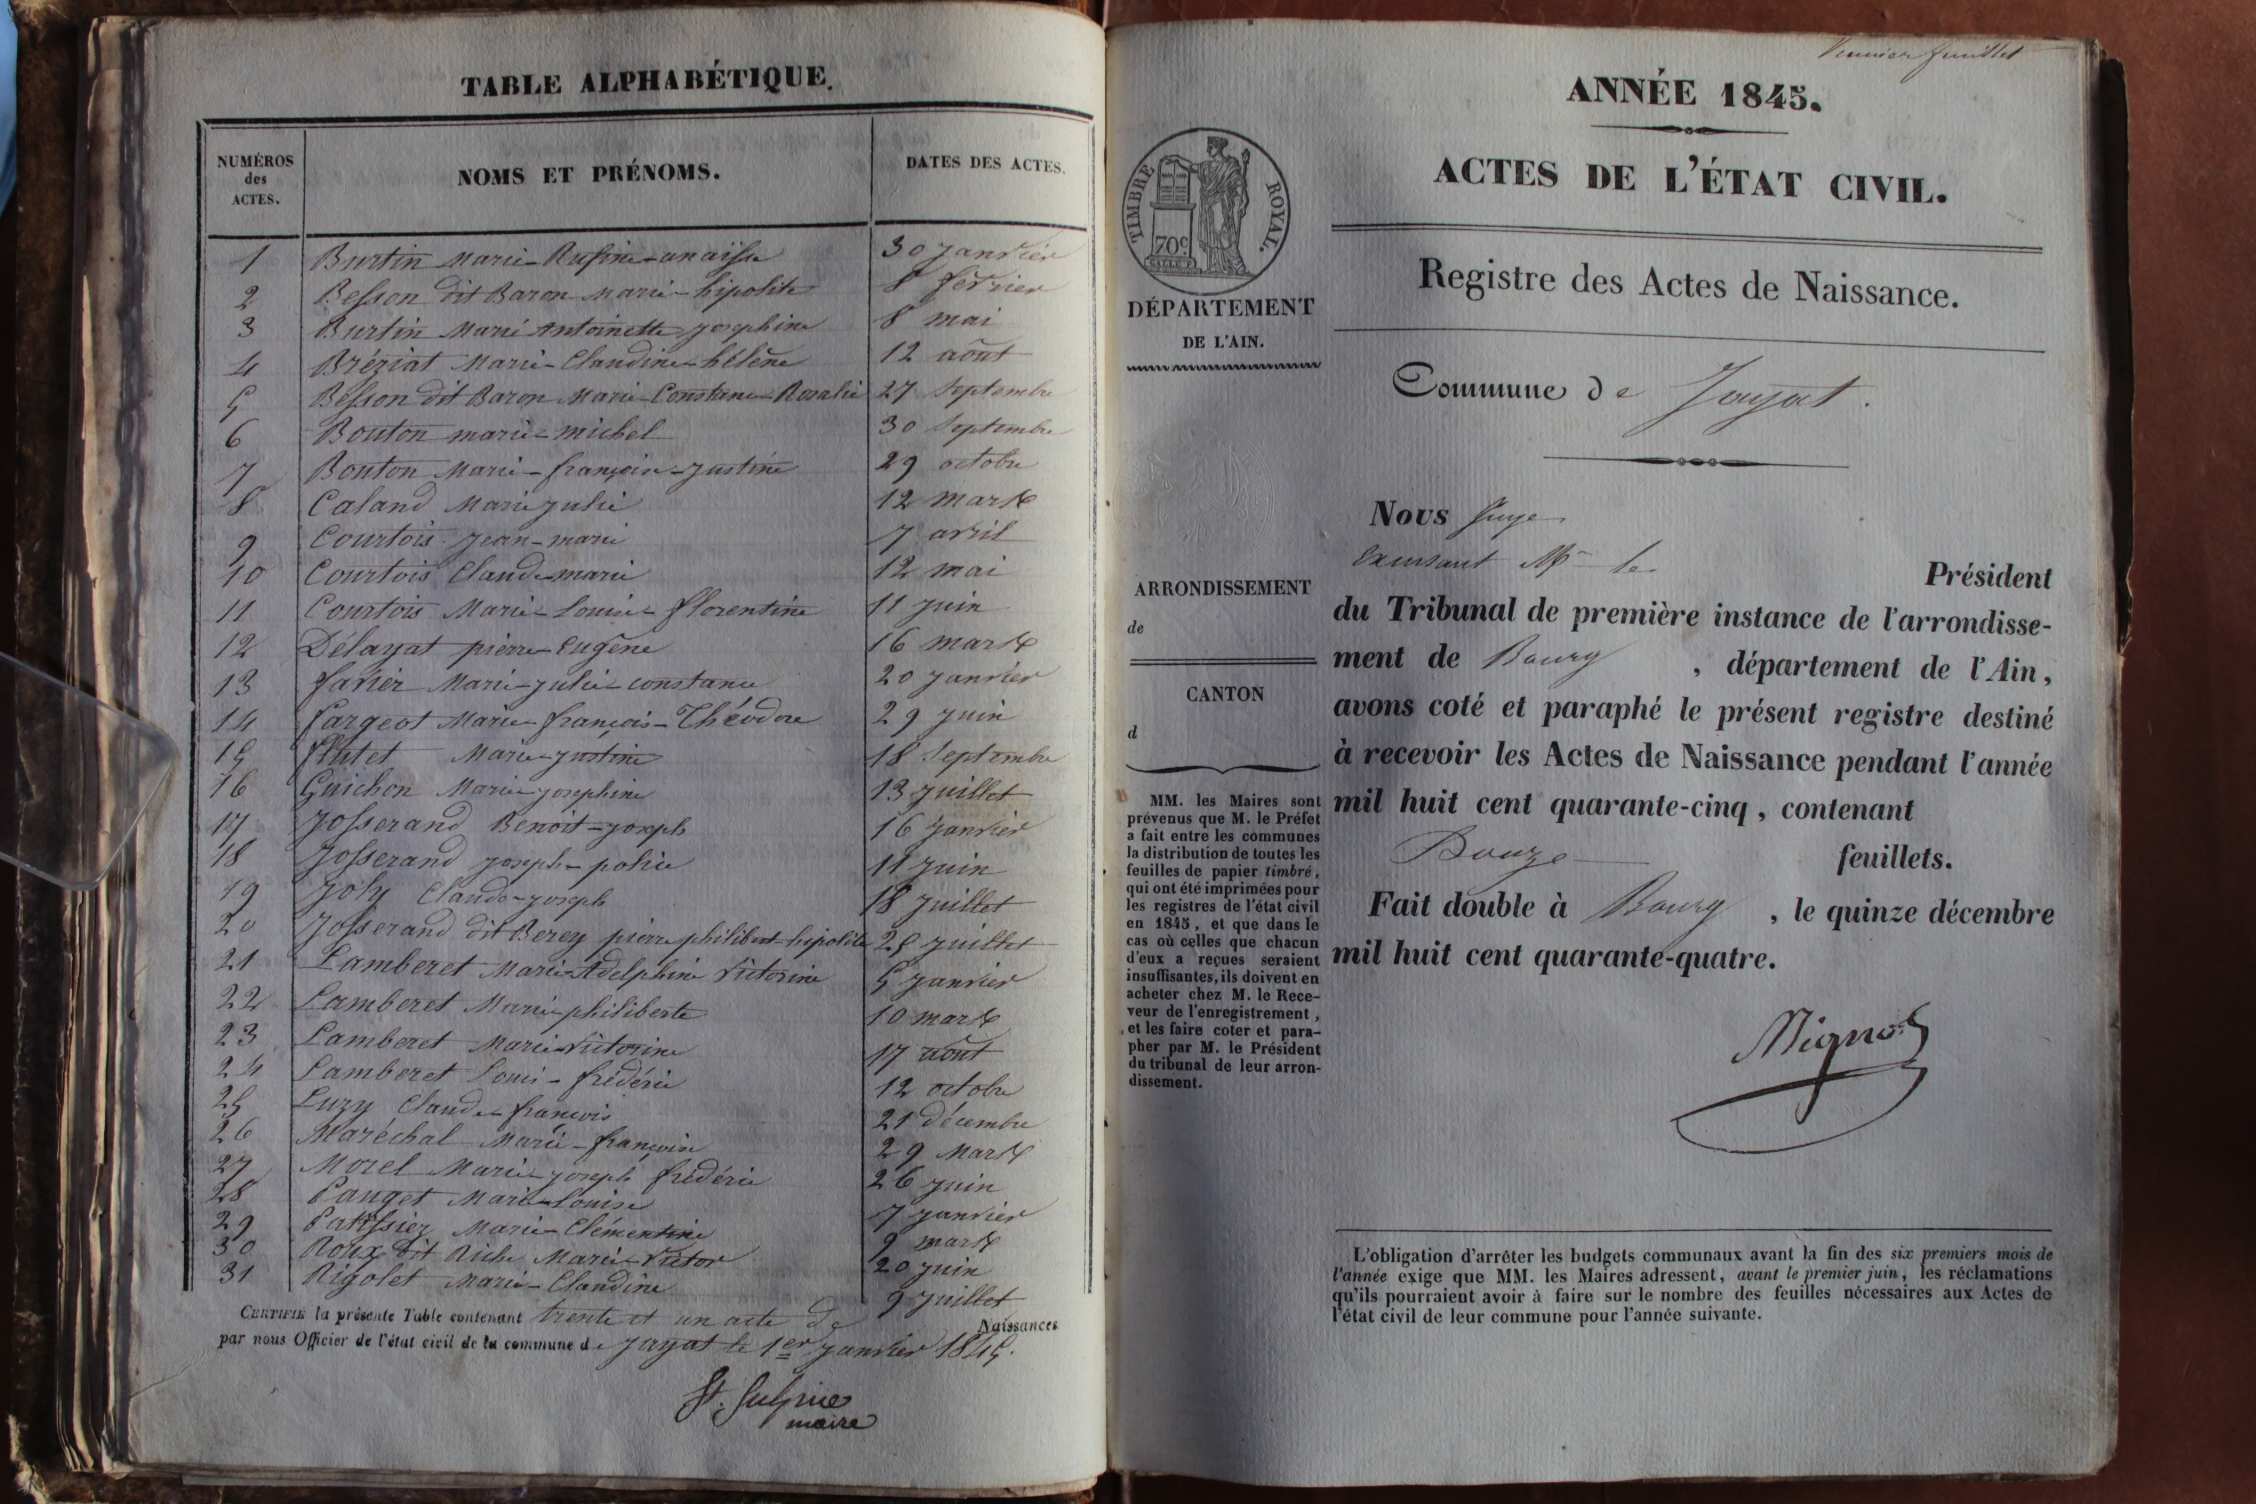 TABLE ALPHABÉTIQUE.
NUMÉROS
des
ACTES.
NOMS ET PRÉNOMS.
DATES DES ACTES.
1 Burtin Marie-Rufine-anaïse 30 janvier
2 Besson dit Baron Marie-hipolite 8 février
3 Burtin Marie Antoinette josephine 8 mai
4 Bréziat Marie-Claudine-hélène 12 août
5 Besson dit Baron Marie-Constance-Rosalie 27 septembre
6 Bouton marie-michel 30 septembre
7 Bouton Marie-françoise-justine 29 octobre
8 Caland Marie julie 12 mars
9 Courtois jean-marie 7 avril
10 Courtois Claude-marie 12 mai
11 Courtois Marie-Louise-florentine 11 juin
12 Délayat pierre-Eugène 16 mars
13 favier Marie-julie-constance 20 janvier
14 fargeot Marie-françois-Théodore 29 juin
15 flutet Marie-justine 18 septembre
16 Guichon Marie-josephine 13 juillet
17 josserand Benoit-joseph 16 janvier
18 josserand joseph- 11 juin
19 joly Claude-joseph 18 juillet
20 josserand dit Berey pierre philibert-hipolite 25 juillet
21 Lamberet Marie-Adelphine Victorine 5 janvier
22 Lamberet Marie-philiberte 10 mars
23 Lamberet Marie-Victorine 17 août
24 Lamberet Louis-frédéric 12 octobre
25 Luzy Claude-françois 21 décembre
26 Maréchal Marie-françoise 29 Mars
27 Morel Marie-joseph frédéric 26 juin
28 Pauget Marie-Louise 7 janvier
29 Patissier Marie-Clémentine 9 mars
30 Roux dit Riche Marie-Victor 20 juin
31 Rigolet Marie-Claudine 9 juillet
CERTIFIE la présente Table contenant trente et un acte de Naissances
par nous Officier de l'état civil de la commune de jayat le 1er janvier 1845.
St. Sulpice
maire
Premier feuillet
ANNÉE 1845.
ACTES DE L'ÉTAT CIVIL.
TIMBRE ROYAL.
70c
DÉPARTEMENT
DE L'AIN.
Registre des Actes de Naissance.
Commune de Jayat.
ARRONDISSEMENT
de
CANTON
d
MM. les Maires sont
prévenus que M. le Préfet
a fait entre les communes
la distribution de toutes les
feuilles de papier timbré,
qui ont été imprimées pour
les registres de l'état civil
en 1845, et que dans le
cas où celles que chacun
d'eux a reçues seraient
insuffisantes, ils doivent en
acheter chez M. le Rece-
veur de l'enregistrement,
et les faire coter et para-
pher par M. le Président
du tribunal de leur arron-
dissement.
Nous Juge
Excusant Mr le Président
du Tribunal de première instance de l'arrondisse-
ment de Bourg, département de l'Ain,
avons coté et paraphé le présent registre destiné
à recevoir les Actes de Naissance pendant l'année
mil huit cent quarante-cinq, contenant
Douze feuillets.
Fait double à Bourg, le quinze décembre
mil huit cent quarante-quatre.
L'obligation d'arrêter les budgets communaux avant la fin des six premiers mois de
l'année exige que MM. les Maires adressent, avant le premier juin, les réclamations
qu'ils pourraient avoir à faire sur le nombre des feuilles nécessaires aux Actes de
l'état civil de leur commune pour l'année suivante.